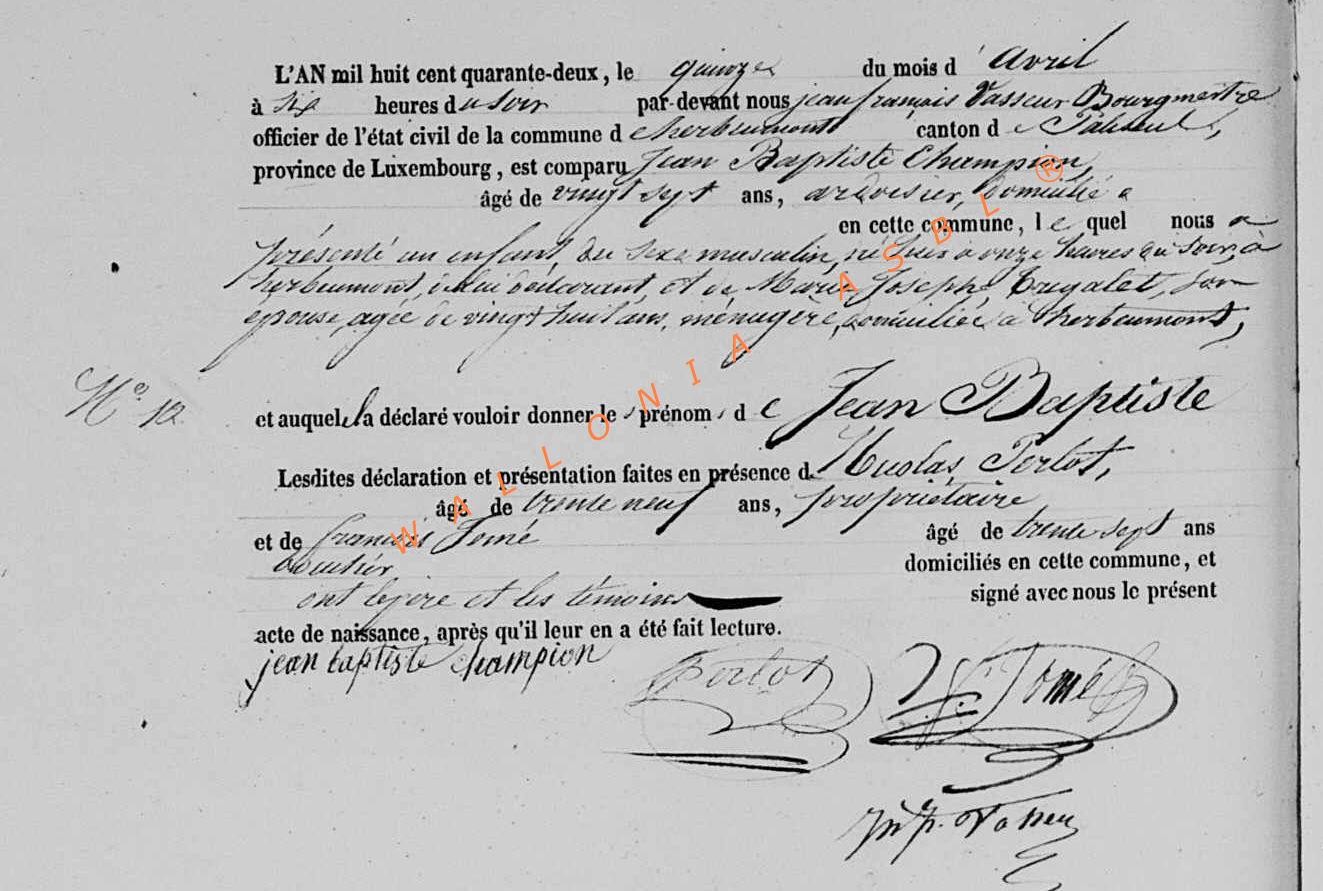 L'AN mil huit cent quarante-deux, le quinze du mois d' avril
à six heures du soir par-devant nous jean françois Vasseur Bourgmestre
officier de l'état civil de la commune d e herbeumont canton d e Paliseul,
province de Luxembourg, est comparu Jean Baptiste Champion,
âgé de vingt sept ans, ardoisier, domicilié a
en cette commune, l e quel nous a
présenté un enfant du sexe masculin, né hier à onze heures du soir, à
herbeumont, de lui déclarant, et de Marie Joseph Trigalet, son
épouse, agée de vingt huit ans, ménagère, domiciliée à herbeumont,
N° 12
et auquel il a déclaré vouloir donner le s prénom s d e Jean Baptiste
Lesdites déclaration et présentation faites en présence d e Nicolas Perlot,
âgé de trente neuf ans, propriétaire
et de françois Jomé âgé de trente sept ans
domiciliés en cette commune, et
ont le père et les témoins signé avec nous le présent
acte de naissance, après qu'il leur en a été fait lecture.
jean baptiste champion Perlot Jomé
WALLONIA ASBL ®